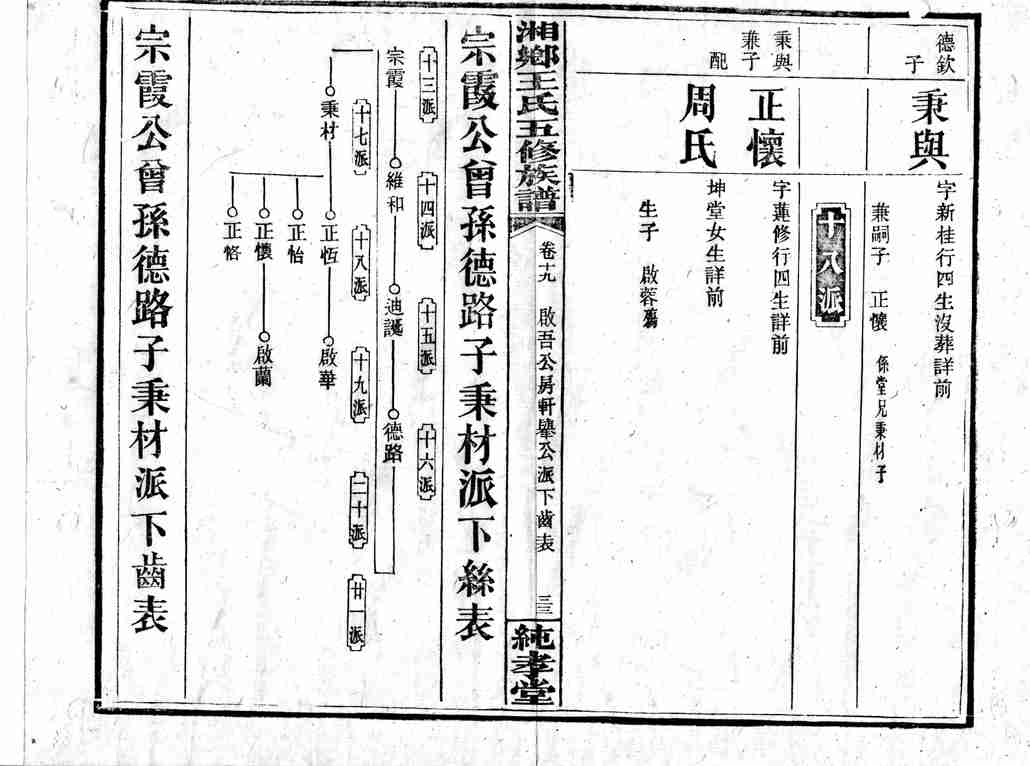 德欽
子
秉與
字新桂行四生沒葬詳前
兼嗣子 正懷 係堂兄秉材子
十八派
秉與
兼子
正懷
字蓮修行四生詳前
配
周氏
坤堂女生詳前
生子 啟蓉殤
湘鄉王氏五修族譜
卷十九
啟吾公房軒舉公派下齒表
三三
純孝堂
宗霞公曾孫德路子秉材派下絲表
十三派
十四派
十五派
十六派
宗霞
維和
迪誕
德路
十七派
十八派
十九派
二十派
廿一派
秉材
正恆
啟華
正怡
正懷
啟蘭
正恪
宗霞公曾孫德路子秉材派下齒表